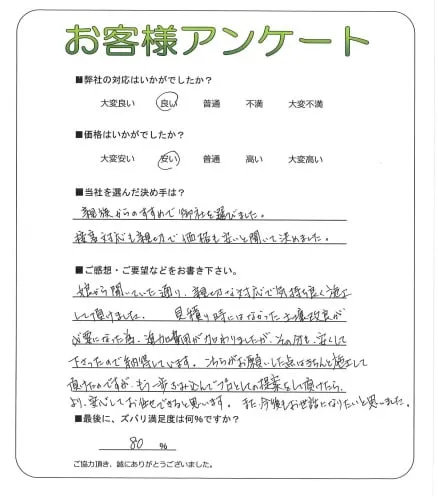 お客様アンケート
■弊社の対応はいかがでしたか？
大変良い 良い 普通 不満 大変不満
■価格はいかがでしたか？
大変安い 安い 普通 高い 大変高い
■当社を選んだ決め手は？
親族からのすすめで御社を選びました。
接客対応も親切で価格も安いと聞いて決めました。
■ご感想・ご要望などをお書き下さい。
娘から聞いていた通り、親切な対応で気持ち良く施工
して頂けました。 見積り時にはなかった土壌改良が
必要になった為、追加費用が加わりましたが、その分も安くして
下さったので納得しています。こちらがお願いした点はきちんと施工して
頂けたのですが、もう一歩ふみ込んでプロとしての提案をして頂けたら、
より安心してお任せできると思います。 また今後もお世話になりたいと思いました。
■最後に、ズバリ満足度は何％ですか？
80 %
ご協力頂き、誠にありがとうございました。